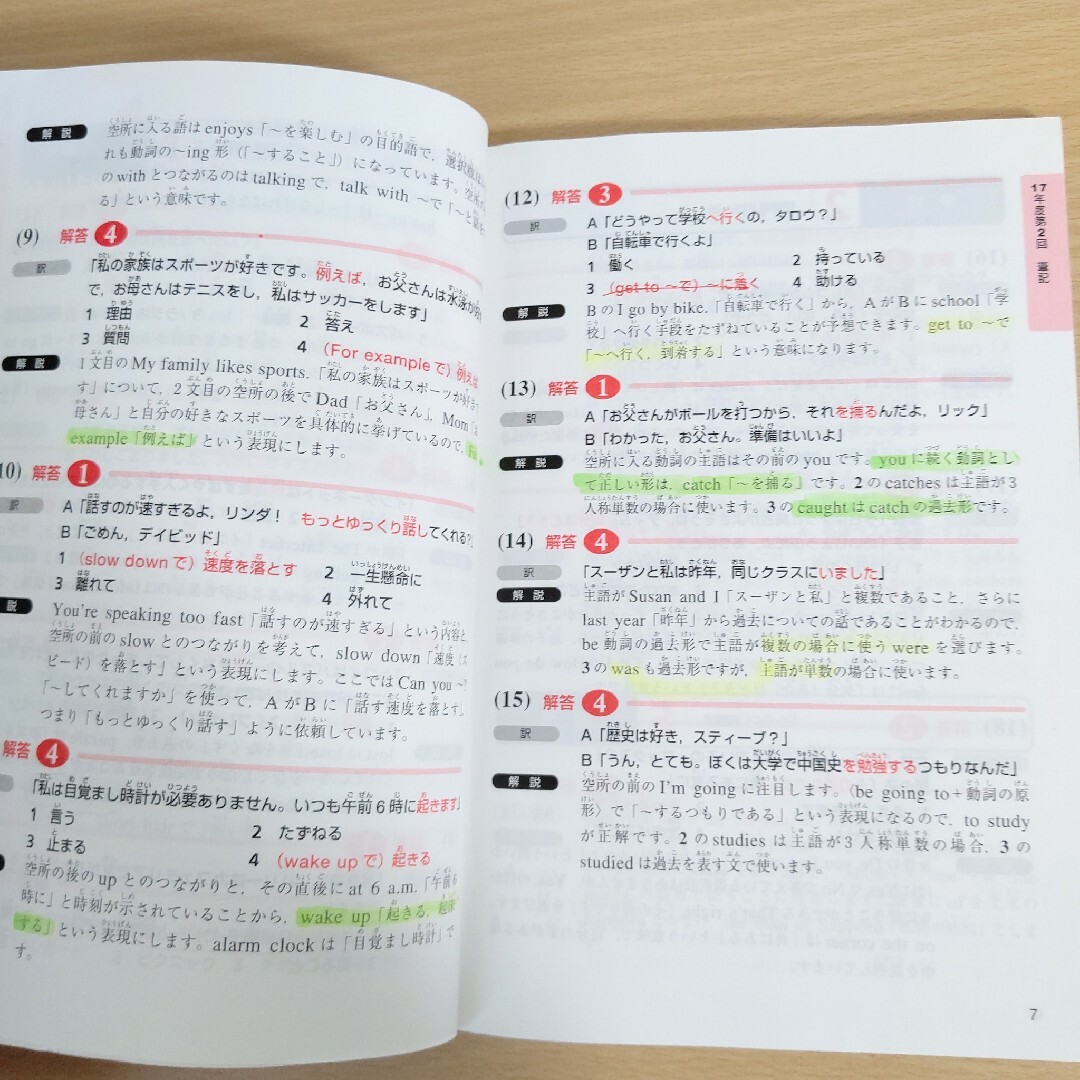 解説 空所に入る語はenjoys「～を楽しむ」の目的語で，選択肢は
れも動詞の～ing形（「～すること」）になっています。空所の
のwithとつながるのはtalkingで，talk with ～で「～と話を
る」という意味です。
(9) 解答 4
訳 「私の家族はスポーツが好きです。例えば，お父さんは水泳が
で，お母さんはテニスをし，私はサッカーをします」
1 理由 2 答え
3 質問 4 (For exampleで) 例えば
解説 1文目のMy family likes sports.「私の家族はスポーツが好き
す」について，2文目の空所の後でDad「お父さん」，Mom「お
母さん」と自分の好きなスポーツを具体的に挙げているので，For
example「例えば」という表現にします。
10) 解答 1
訳 A「話すのが速すぎるよ，リンダ！ もっとゆっくり話してくれる？」
B「ごめん，デイビッド」
1 (slow downで) 速度を落とす 2 一生懸命に
3 離れて 4 外れて
説 You're speaking too fast「話すのが速すぎる」という内容と
空所の前のslowとのつながりを考えて，slow down「速度（ス
ピード）を落とす」という表現にします。ここではCan you ～?
「～してくれますか」を使って，AがBに「話す速度を落とす」，
つまり「もっとゆっくり話す」ように依頼しています。
解答 4
「私は目覚まし時計が必要ありません。いつも午前6時に起きます」
1 言う 2 たずねる
3 止まる 4 (wake upで) 起きる
空所の後のupとのつながりと，その直後にat 6 a.m.「午前6
時に」と時刻が示されていることから，wake up「起きる，起床
する」という表現にします。alarm clockは「目覚まし時計」で
す。
(12) 解答 3
訳 A「どうやって学校へ行くの，タロウ？」
B「自転車で行くよ」
1 働く 2 持っている
3 (get to ～で) ～に着く 4 助ける
解説 BのI go by bike.「自転車で行く」から，AがBにschool「学
校」へ行く手段をたずねていることが予想できます。get to ～で
「～へ行く，到着する」という意味になります。
(13) 解答 1
訳 A「お父さんがボールを打つから，それを捕るんだよ，リック」
B「わかった，お父さん。準備はいいよ」
解説 空所に入る動詞の主語はその前のyouです。youに続く動詞とし
て正しい形は，catch「～を捕る」です。2のcatchesは主語が3
人称単数の場合に使います。3のcaughtはcatchの過去形です。
(14) 解答 4
訳 「スーザンと私は昨年，同じクラスにいました」
解説 主語がSusan and I「スーザンと私」と複数であること，さらに
last year「昨年」から過去についての話であることがわかるので，
be動詞の過去形で主語が複数の場合に使うwereを選びます。
3のwasも過去形ですが，主語が単数の場合に使います。
(15) 解答 4
訳 A「歴史は好き，スティーブ？」
B「うん，とても。ぼくは大学で中国史を勉強するつもりなんだ」
解説 空所の前のI'm goingに注目します。〈be going to＋動詞の原
形〉で「～するつもりである」という表現になるので，to study
が正解です。2のstudiesは主語が3人称単数の場合，3の
studiedは過去を表す文で使います。
17年度第2回 筆記
7